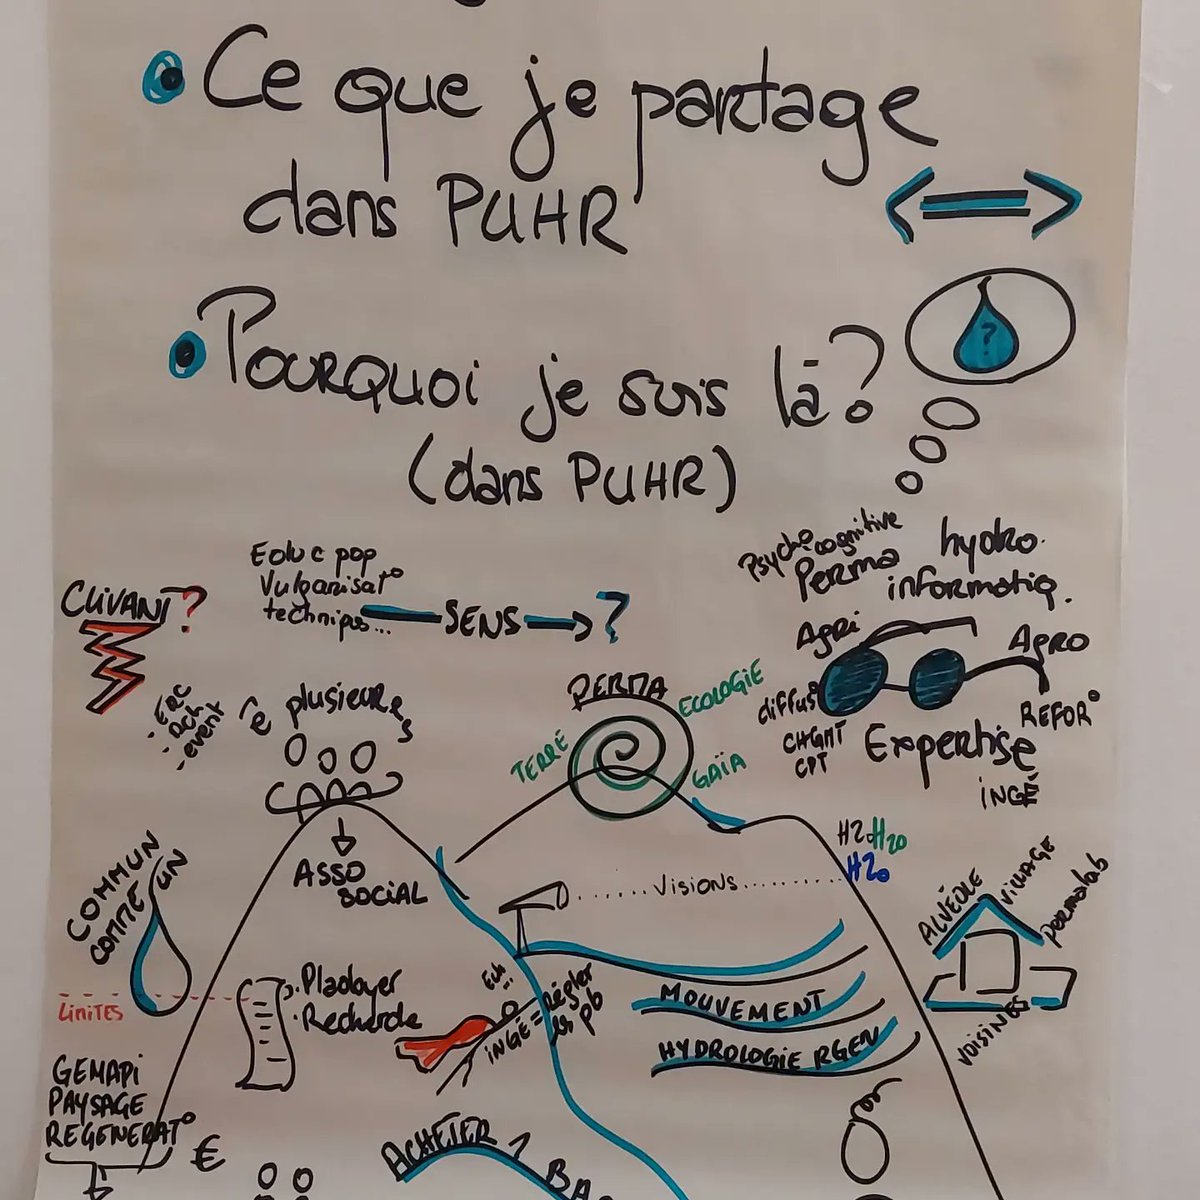 Ce que je partage
dans PUHR
Pourquoi je suis là?
(dans PUHR)
?
Psycho cognitive
Perma
hydro
informatiq.
Agri
Agro
diffus°
CHGMT
CPT
Expertise
REFOR°
INGÉ
CLIVANT?
ERC
RCh
event
Educ pop
Vulgarisat°
techniques...
SENS
?
ê plusieurs
ASSO
SOCIAL
PERMA
ECOLOGIE
TERRE
GAÏA
H2O H2O
H2O
Visions
COMMUN
COMME UN
LIMITES
Plaidoyer
Recherche
INGÉ = Régler
les pb
MOUVEMENT
HYDROLOGIE RGEN
ALVÉOLE
VILLAGE
permalab
VOISINES
GEMAPI
PAYSAGE
REGENERAT°
€
ACHETER 1 BA